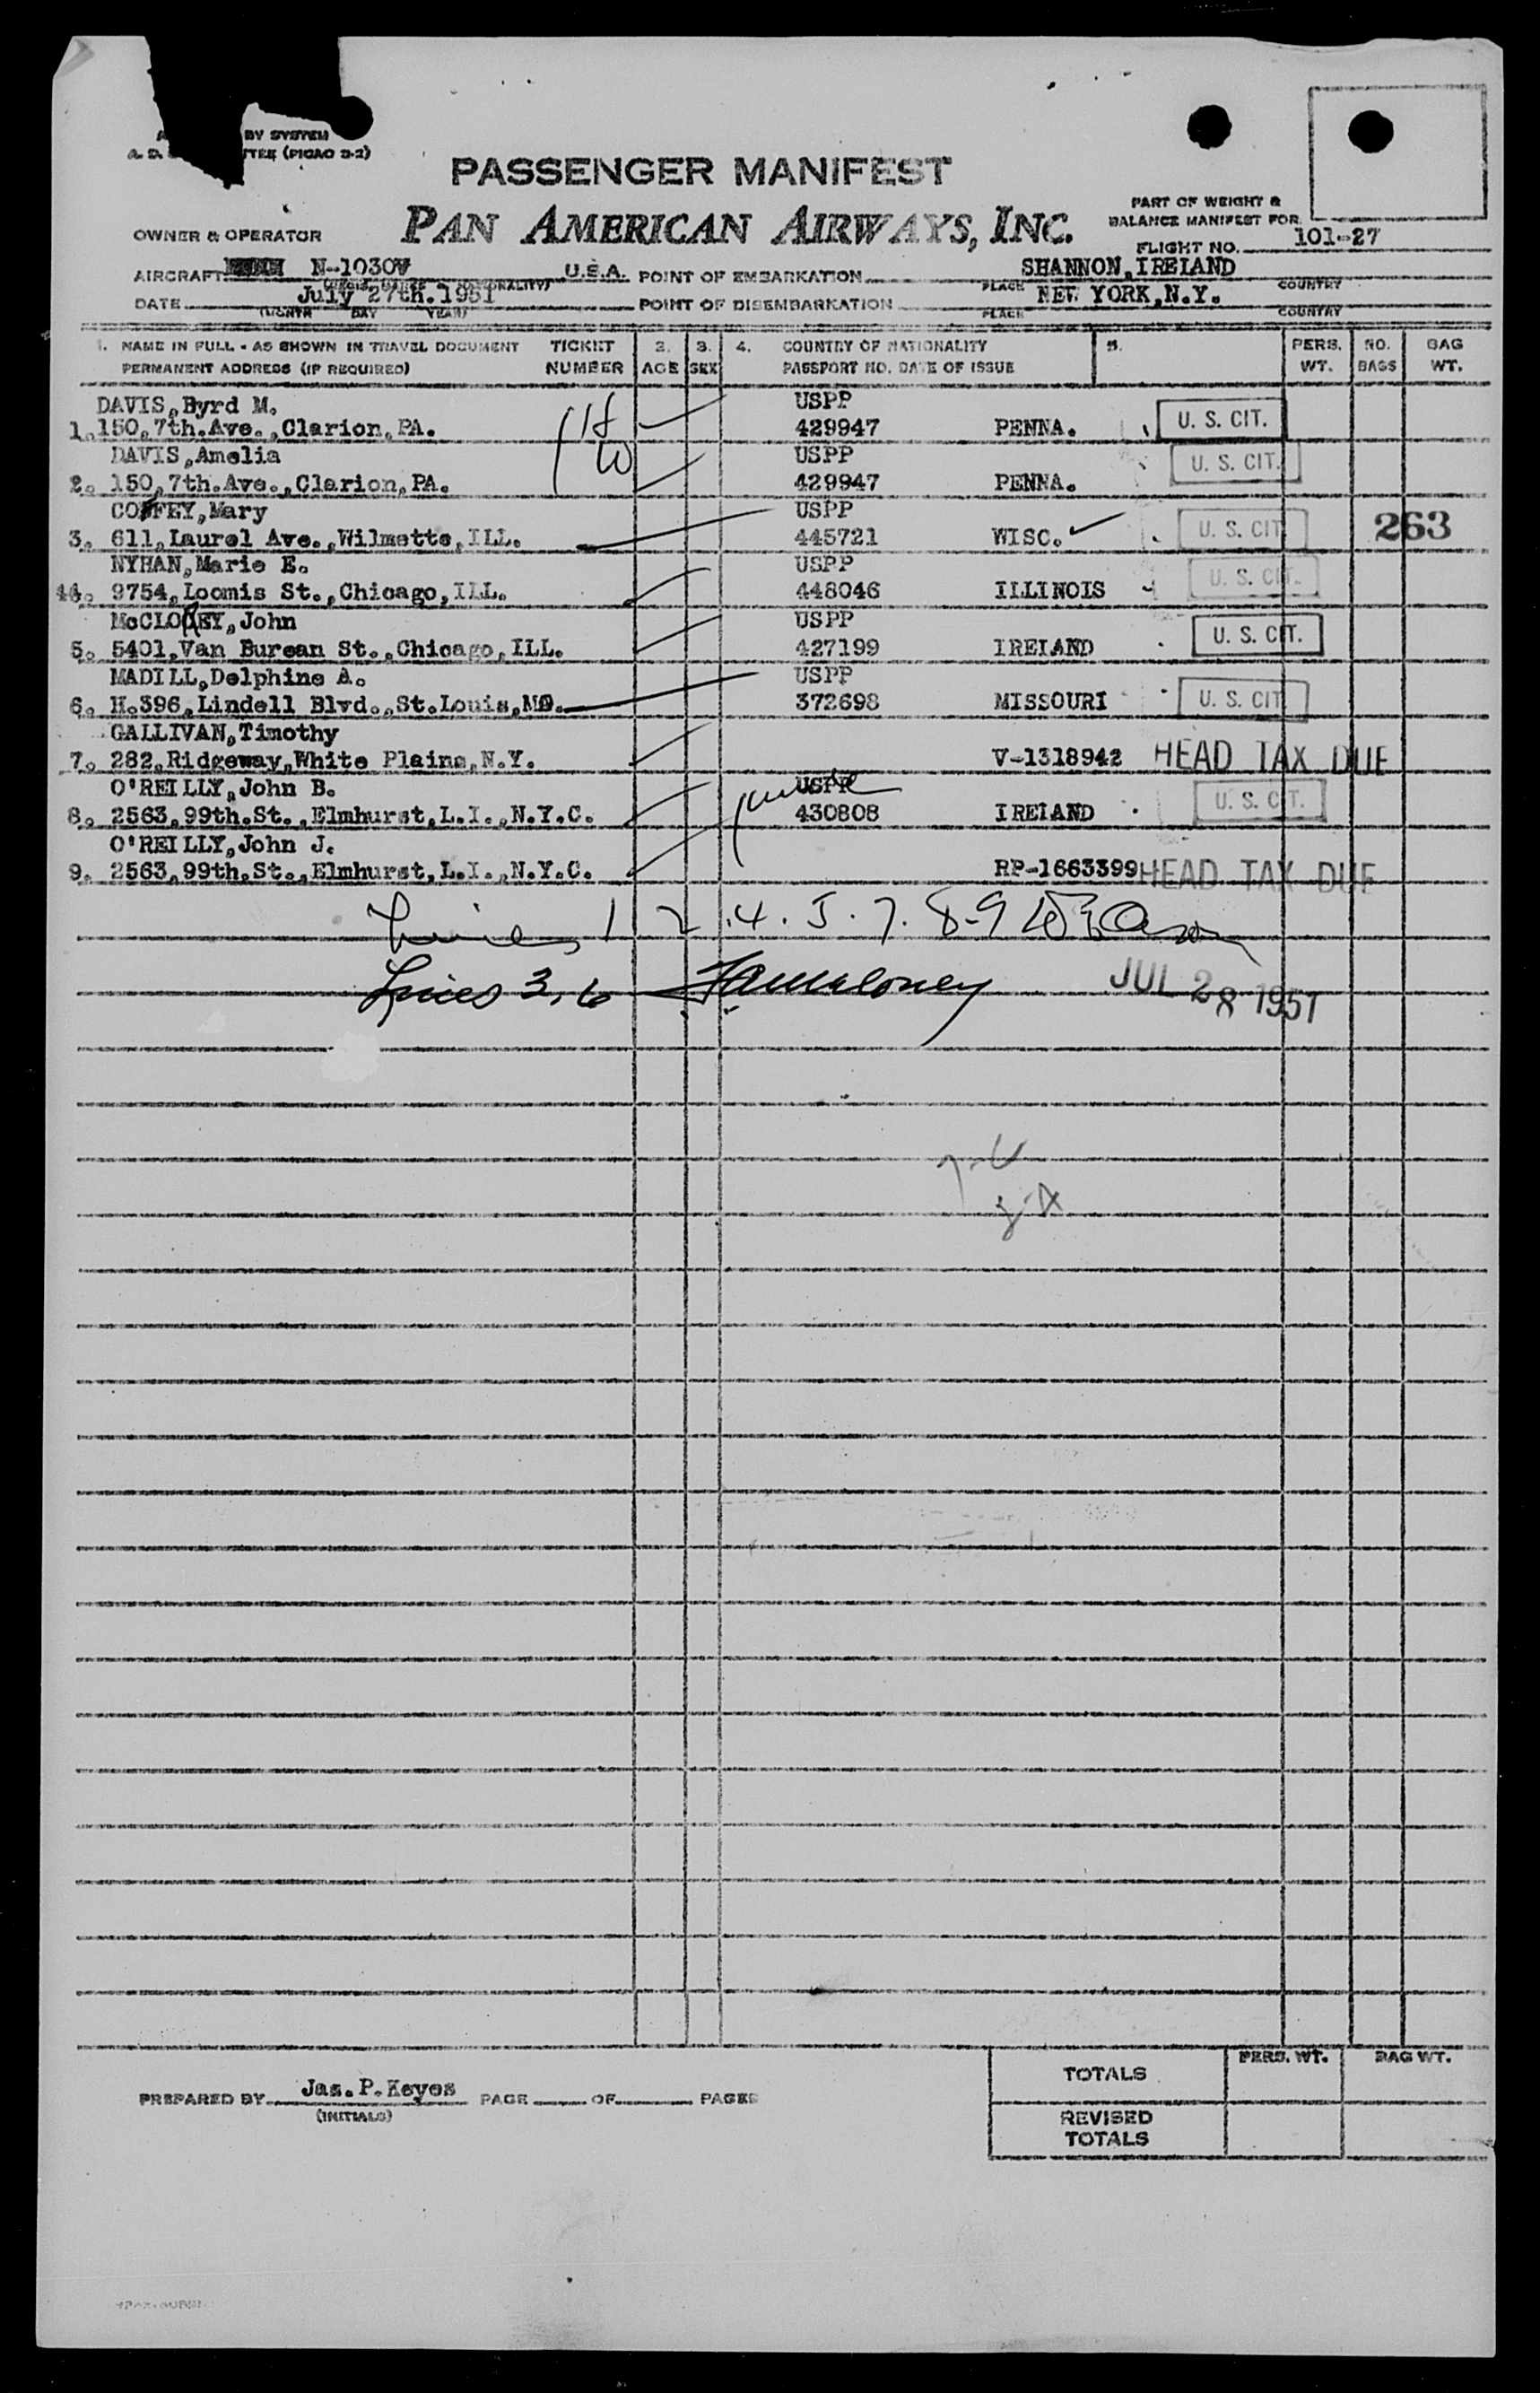 BY SYSTEM
(PICAO 2-2)
PASSENGER MANIFEST
PART OF WEIGHT &
BALANCE MANIFEST FOR
OWNER & OPERATOR PAN AMERICAN AIRWAYS, INC.
FLIGHT NO. 101-27
AIRCRAFT N-1030V U.S.A. POINT OF EMBARKATION SHANNON, IRELAND
PLACE COUNTRY
DATE July 27th. 1951 POINT OF DISEMBARKATION NEW YORK, N.Y.
(MONTH DAY YEAR) PLACE COUNTRY
1. NAME IN FULL - AS SHOWN IN TRAVEL DOCUMENT TICKET 2. 3. 4. COUNTRY OF NATIONALITY 5. PERS. NO. BAG
PERMANENT ADDRESS (IF REQUIRED) NUMBER AGE SEX PASSPORT NO. DATE OF ISSUE WT. BAGS WT.
DAVIS, Byrd M. USPP
1. 150, 7th. Ave., Clarion, PA. 429947 PENNA. U. S. CIT.
DAVIS, Amelia USPP U. S. CIT.
2. 150, 7th. Ave., Clarion, PA. 429947 PENNA.
COFFEY, Mary USPP
3. 611, Laurel Ave., Wilmette, ILL. 445721 WISC. U. S. CIT 263
NYHAN, Marie E. USPP
4. 9754, Loomis St., Chicago, ILL. 448046 ILLINOIS U. S. CIT.
McCLOREY, John USPP
5. 5401, Van Burean St., Chicago, ILL. 427199 IRELAND U. S. CIT.
MADILL, Delphine A. USPP
6. H.396, Lindell Blvd., St. Louis, MO. 372698 MISSOURI U. S. CIT
GALLIVAN, Timothy
7. 282, Ridgeway, White Plains, N.Y. V-1318942 HEAD TAX DUE
O'REILLY, John B. USPP
8. 2563, 99th. St., Elmhurst, L.I., N.Y.C. 430808 IRELAND U. S. CIT.
O'REILLY, John J.
9. 2563, 99th. St., Elmhurst, L.I., N.Y.C. RP-1663399 HEAD TAX DUE
Lines 1 2 .4. 5. 7. 8-9
Lines 3, 6 JUL 28 1951
PREPARED BY Jas. P. Keyes PAGE OF PAGES
(INITIALS)
TOTALS PERS. WT. BAG WT.
REVISED
TOTALS